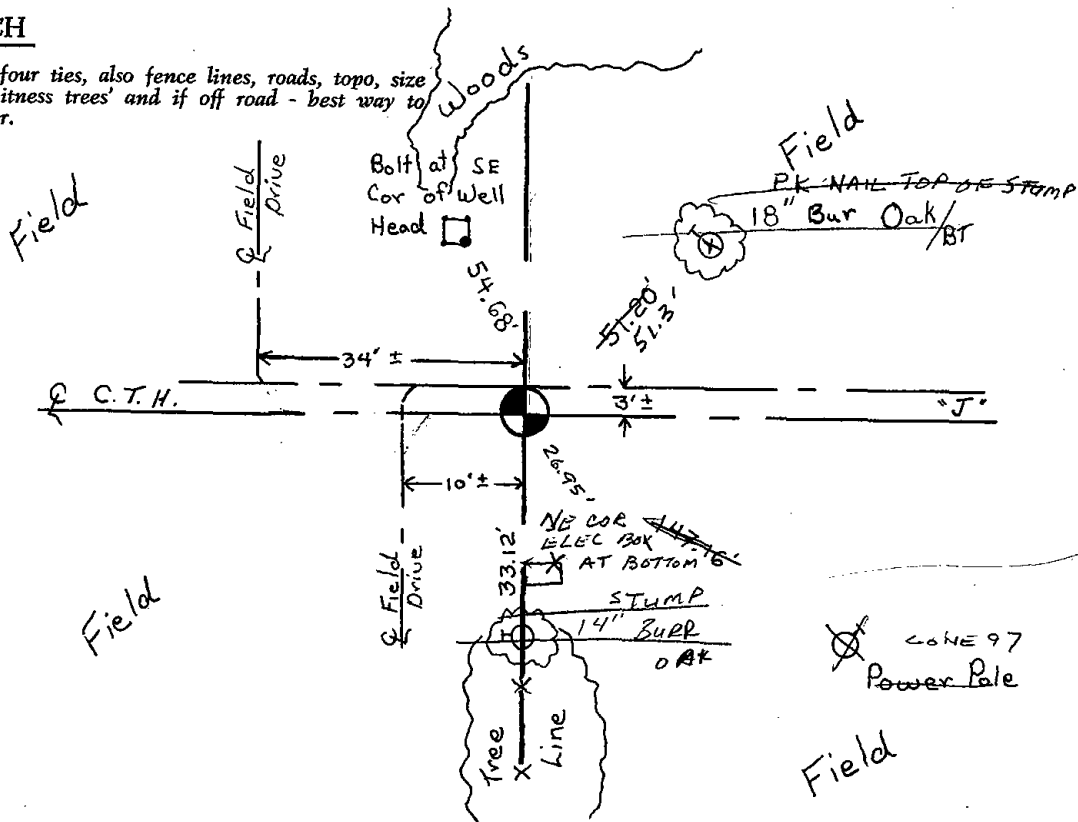 CH
four ties, also fence lines, roads, topo, size
itness trees' and if off road - best way to
r.
Woods
Field
℄ Field
Drive
Bolt at SE
Cor of Well
Head
54.68'
Field
P.K NAIL TOP OF STUMP
18" Bur Oak/BT
51.20'
51.3'
34' ±
℄ C.T.H.
3' ±
"J"
10' ±
26.95'
33.12'
NE COR
ELEC BOX
AT BOTTOM
147.16'
℄ Field
Drive
STUMP
14" BURR
OAK
Field
GONE 97
Power Pole
Tree Line
Field